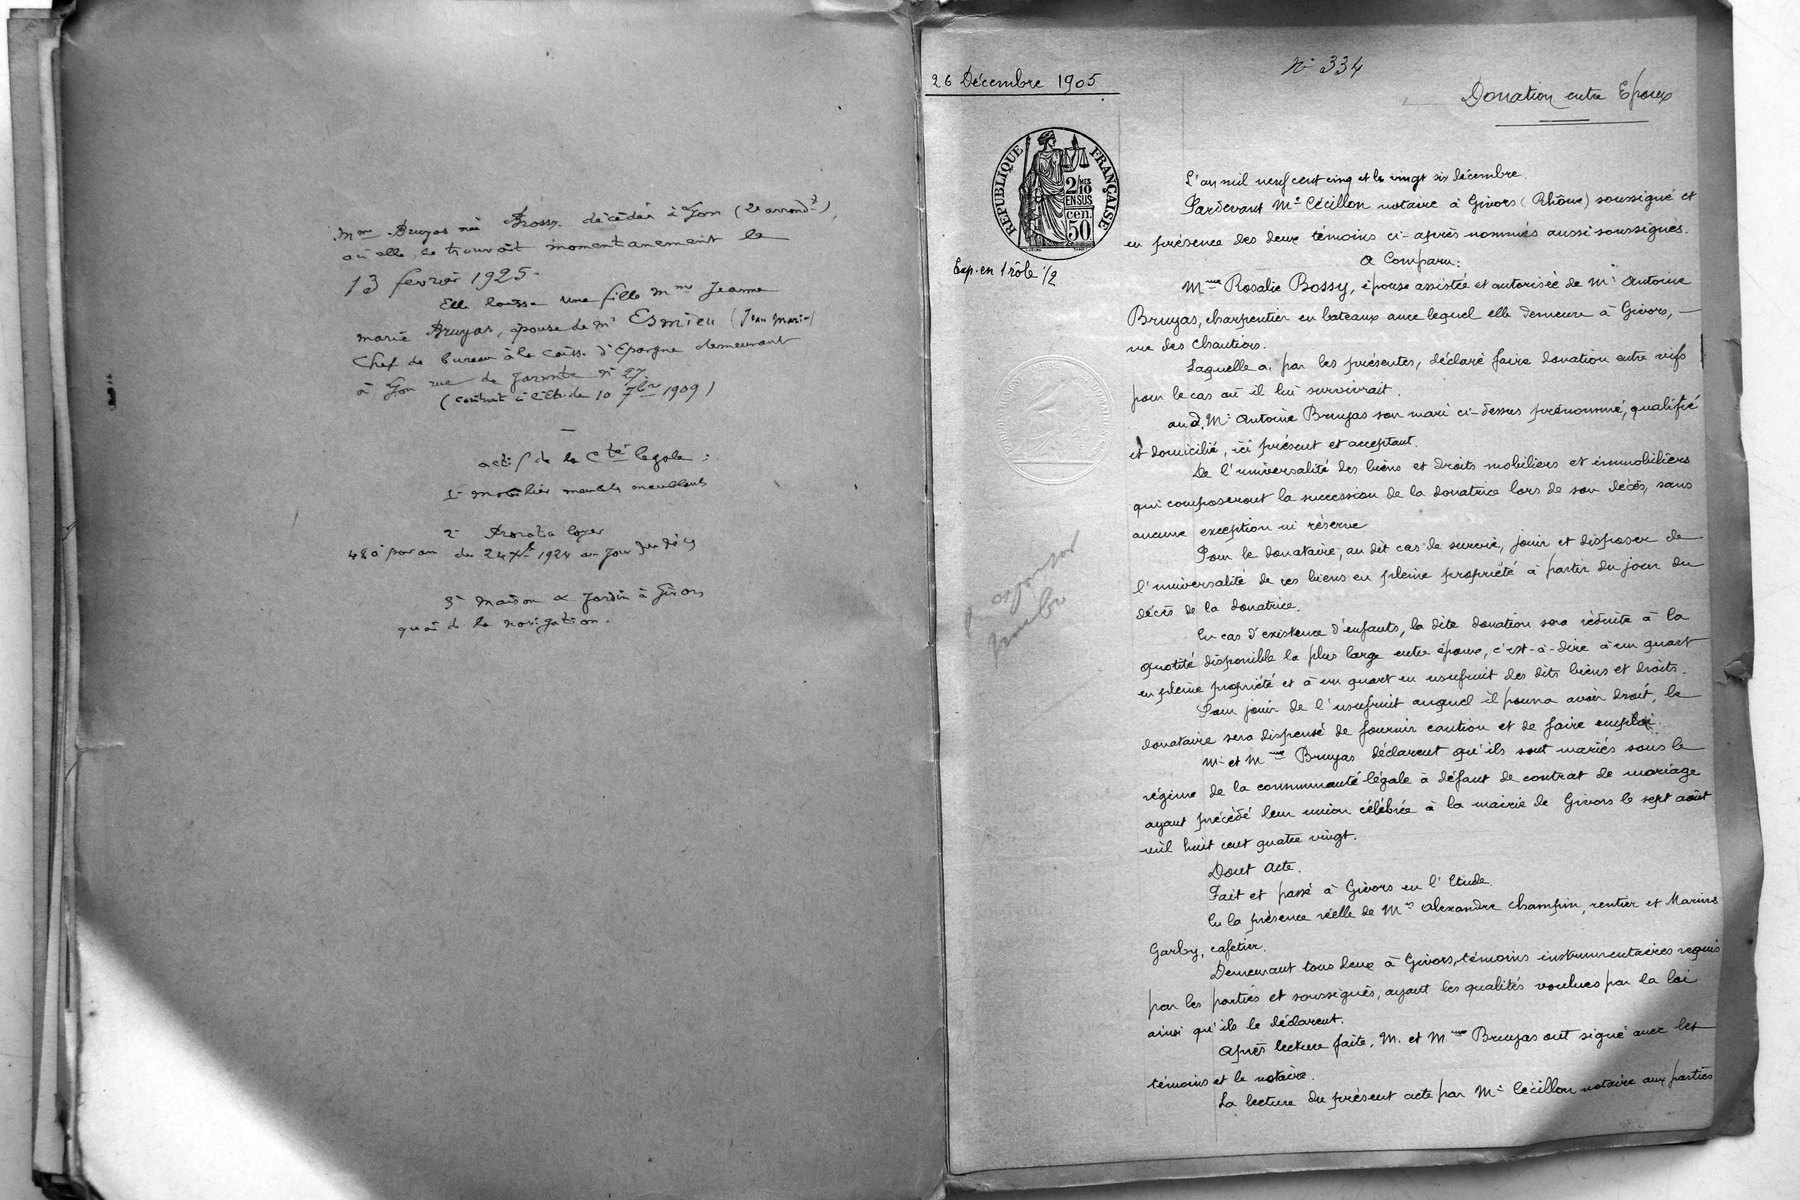 Mme Bruyas née Bossy. décédée à Lyon (2e arrondt),
où elle se trouvait momentanement le
13 fevrier 1925-
Elle laisse une fille Mme Jeanne
marie Bruyas, épouse de Mr Esmieu (Jean Marie)
Chef de bureau à la Caisse d'Epargne demeurant
à Lyon rue de Jarente n° 27
(contrat à l'Etude 10 7bre 1909)
actif de la Cté legale :
1° mobilier meubles meublants
2° Prorata loyer
480 par an du 24 Xbre 1924 au jour du décès
3° maison & Jardin à Givors
quai de la navigation.
26 Décembre 1905
N° 334
Donation entre Epoux
RÉPUBLIQUE FRANÇAISE
2/10MES
EN SUS
50 cen.
Exp. en 1 rôle 1/2
L'an mil neuf cent cinq et le vingt six décembre.
Pardevant Me Cécillon notaire à Givors (Rhône) soussigné et
en présence des deux témoins ci-après nommés aussi soussignés.
a Comparu:
Mme Rosalie Bossy, épouse assistée et autorisée de Mr Antoine
Bruyas, charpentier en bateaux avec lequel elle demeure à Givors,
rue des Chantiers.
Laquelle a, par les présentes, déclaré faire donation entre vifs
pour le cas où il lui survivrait.
au d. Mr Antoine Bruyas son mari ci-dessus prénommé, qualifié
et domicilié, ici présent et acceptant.
De l'universalité des biens et droits mobiliers et immobiliers
qui composeront la succession de la donatrice lors de son décès, sans
aucune exception ni réserve
Pour le donataire, au dit cas de survie, jouir et disposer de
l'universalité de ces biens en pleine propriété à partir du jour du
décès de la donatrice.
En cas d'existence d'enfants, la dite donation sera réduite à la
quotité disponible la plus large entre époux, c'est-à-dire à un quart
en pleine propriété et à un quart en usufruit des dits biens et droits.
Pour jouir de l'usufruit auquel il pourra avoir droit, le
donataire sera dispensé de fournir caution et de faire emploi.
Mr et Mme Bruyas déclarent qu'ils sont mariés sous le
régime de la communauté légale à défaut de contrat de mariage
ayant précédé leur union célébrée à la mairie de Givors le sept août
mil huit cent quatre vingt.
Dont acte.
Fait et passé à Givors en l'Etude.
En la présence réelle de Mrs Alexandre Champin, rentier et Marius
Garby, cafetier.
Demeurant tous deux à Givors, témoins instrumentaires requis
par les parties et soussignés, ayant les qualités voulues par la loi
ainsi qu'ils le déclarent.
Après lecture faite, M. et Mme Bruyas ont signé avec les
témoins et le notaire.
La lecture du présent acte par Me Cécillon notaire aux parties